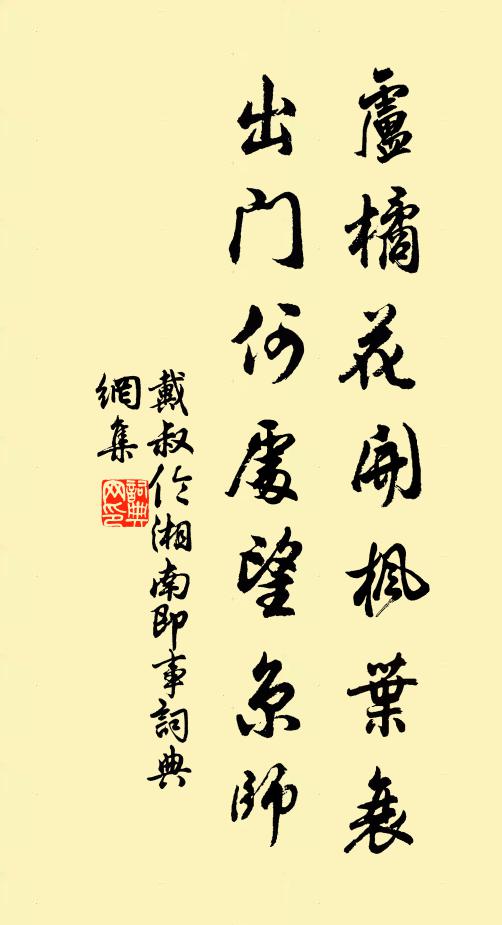 盧橘花開楓葉衰
出門何處望京師
戴叔倫湘南即事詞典
網集
詞典
網印